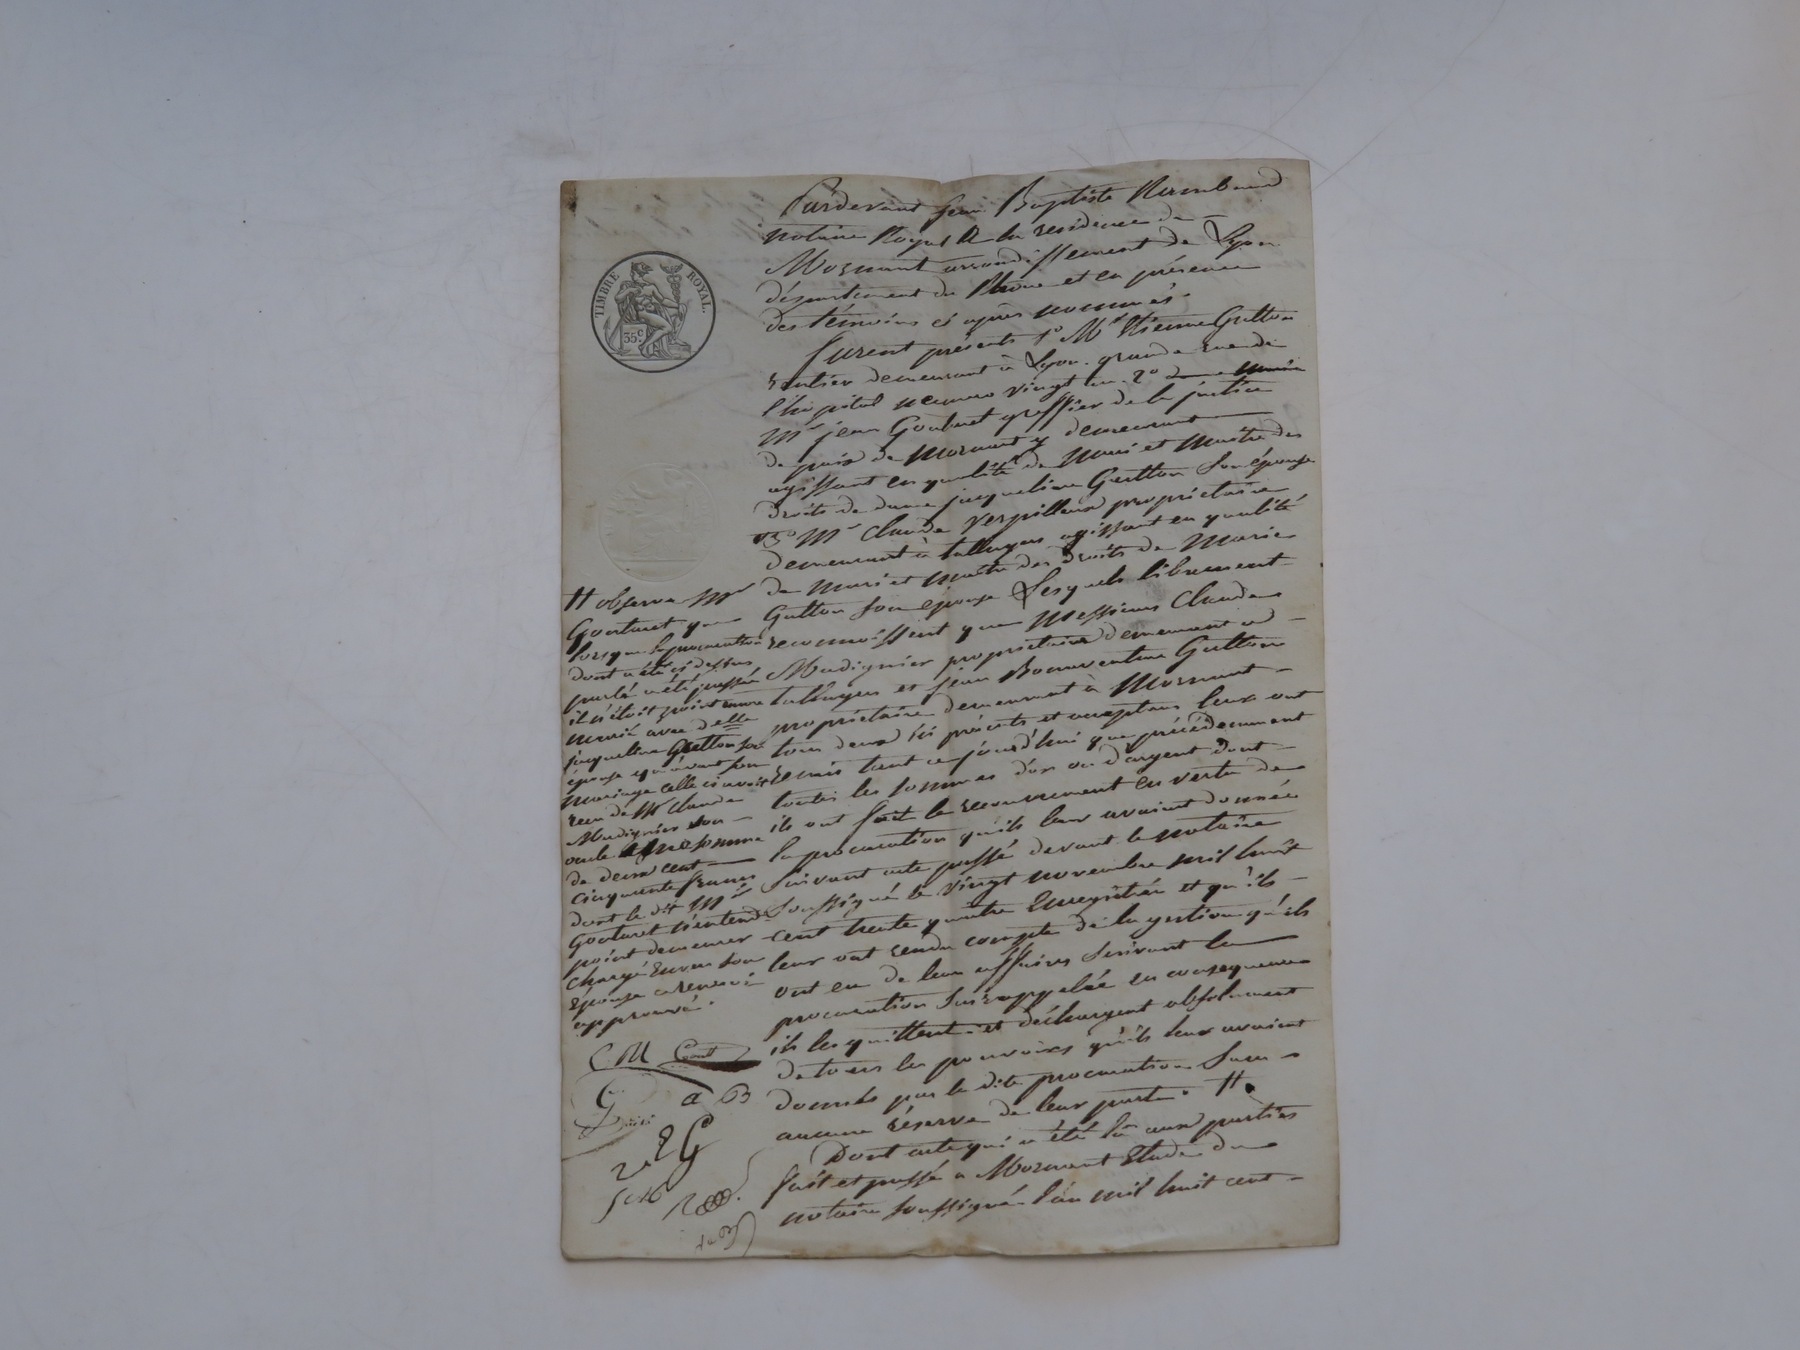 TIMBRE ROYAL.
35c
Pardevant Jean Baptiste
notaire Royal à la résidence de
Mornant arrondissement de Lyon
département du Rhône et en présence
des témoins ci après nommés.
furent présents 1° Mr Etienne Guttton
rentier demeurant à Lyon grande rue de
l'hopital numero vingt un. 2°
Mr jean Goutaret greffier de la justice
de paix de Mornant y demeurant
agissant en qualité de Mari et Maitre des
droits de dame jacqueline Gutton son épouse
3° Mr Claude Verpilleux propriétaire
demeurant à talluyers agissant en qualité
de Mari et Maitre des droits de Marie
Gutton son épouse Lesquels librement
reconnoissent que Messieurs Claude
Madignier propriétaire demeurant a
talluyers et jean Bonaventure Gutton
propriétaire demeurant à Mornant
tous deux ici présents et acceptans leur ont
remis tant ce jourd'hui que précédemment
toutes les sommes d'or ou d'argent dont
ils ont fait le recouvrement en vertu de
la procuration qu'ils leur avaient donnée
suivant acte passé devant le notaire
soussigné le vingt novembre mil huit
cent trente quatre Enregistrée et qu'ils
leur ont rendu compte de la gestion qu'ils
ont eu de leur affaires suivant la
procuration susrappelée en consequence
ils les quittent et déchargent absolument
de tous les pouvoirs qu'ils leur avaient
donnés par la dite procuration Sans
aucune réserve de leur part. H
Dont acte qui a été lu aux parties
fait et passé a Mornant Etude du
notaire soussigné l'an mil huit cent
H observe Mr
Goutaret que
lorsque la procuration
dont a été ci dessus
parlé a été passée
il n'étoit point encore
marié avec delle
jacqueline Gutton son
épouse qu'avant son
mariage celle ci avoit
recu de Mr Claude
Madignier son
oncle une somme
de deux cent
cinquante francs
dont le dit Mr
Goutaret n'entend
point demeurer
chargé Envers son
Epouse ce renvoi
approuvé.
C M
G
a B
G